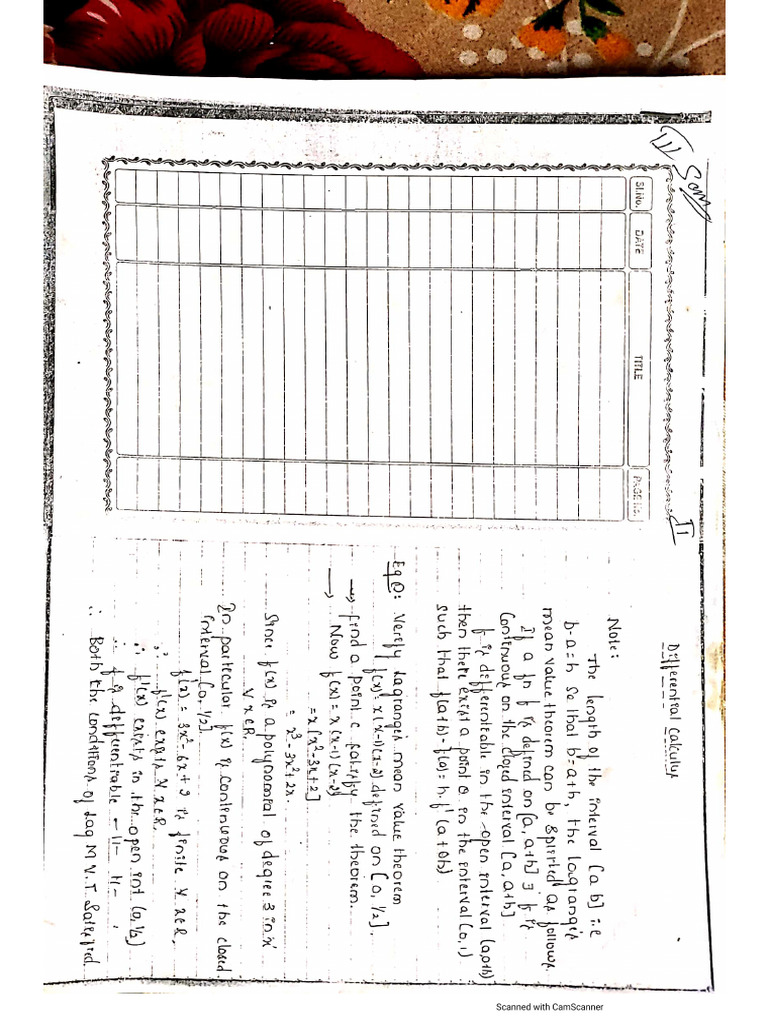 III Sem
SI.No.
DATE
TITLE
PAGE No.
II
Differential calculus
Note:
The length of the interval [a b] i.e
b-a=h so that b=a+h, the lagranges
mean value theorem can be as follows
If a fn f is defined on [a, a+h] ∋ f is
Continuous on the closed interval [a, a+h]
f is differentiable in the open interval (a, a+h)
then there exist a point θ in the interval (0,1)
such that f(a+h)-f(a)=h.f'(a+θh)
Eg①: Verify lagranges mean value theorem
f(x)=x(x-1)(x-2) defined on [0,1/2].
→ find a point c satisfy the theorem.
→ Now f(x)=x(x-1)(x-2)
=x[x²-3x+2]
= x³-3x²+2x.
Since f(x) is a polynomial of degree 3 in 'x'
∀ x∈R.
In particular f(x) is continuous on the closed
interval [0,1/2].
f'(x) = 3x²-6x+2 is finite ∀ x∈R.
∴ f'(x) exists ∀ x∈R.
∴ f'(x) exists in the open int (0,1/2)
∴ f is differentiable -11- 11- .
∴ Both the conditions of Lag M V.T. Satisfied.
Scanned with CamScanner